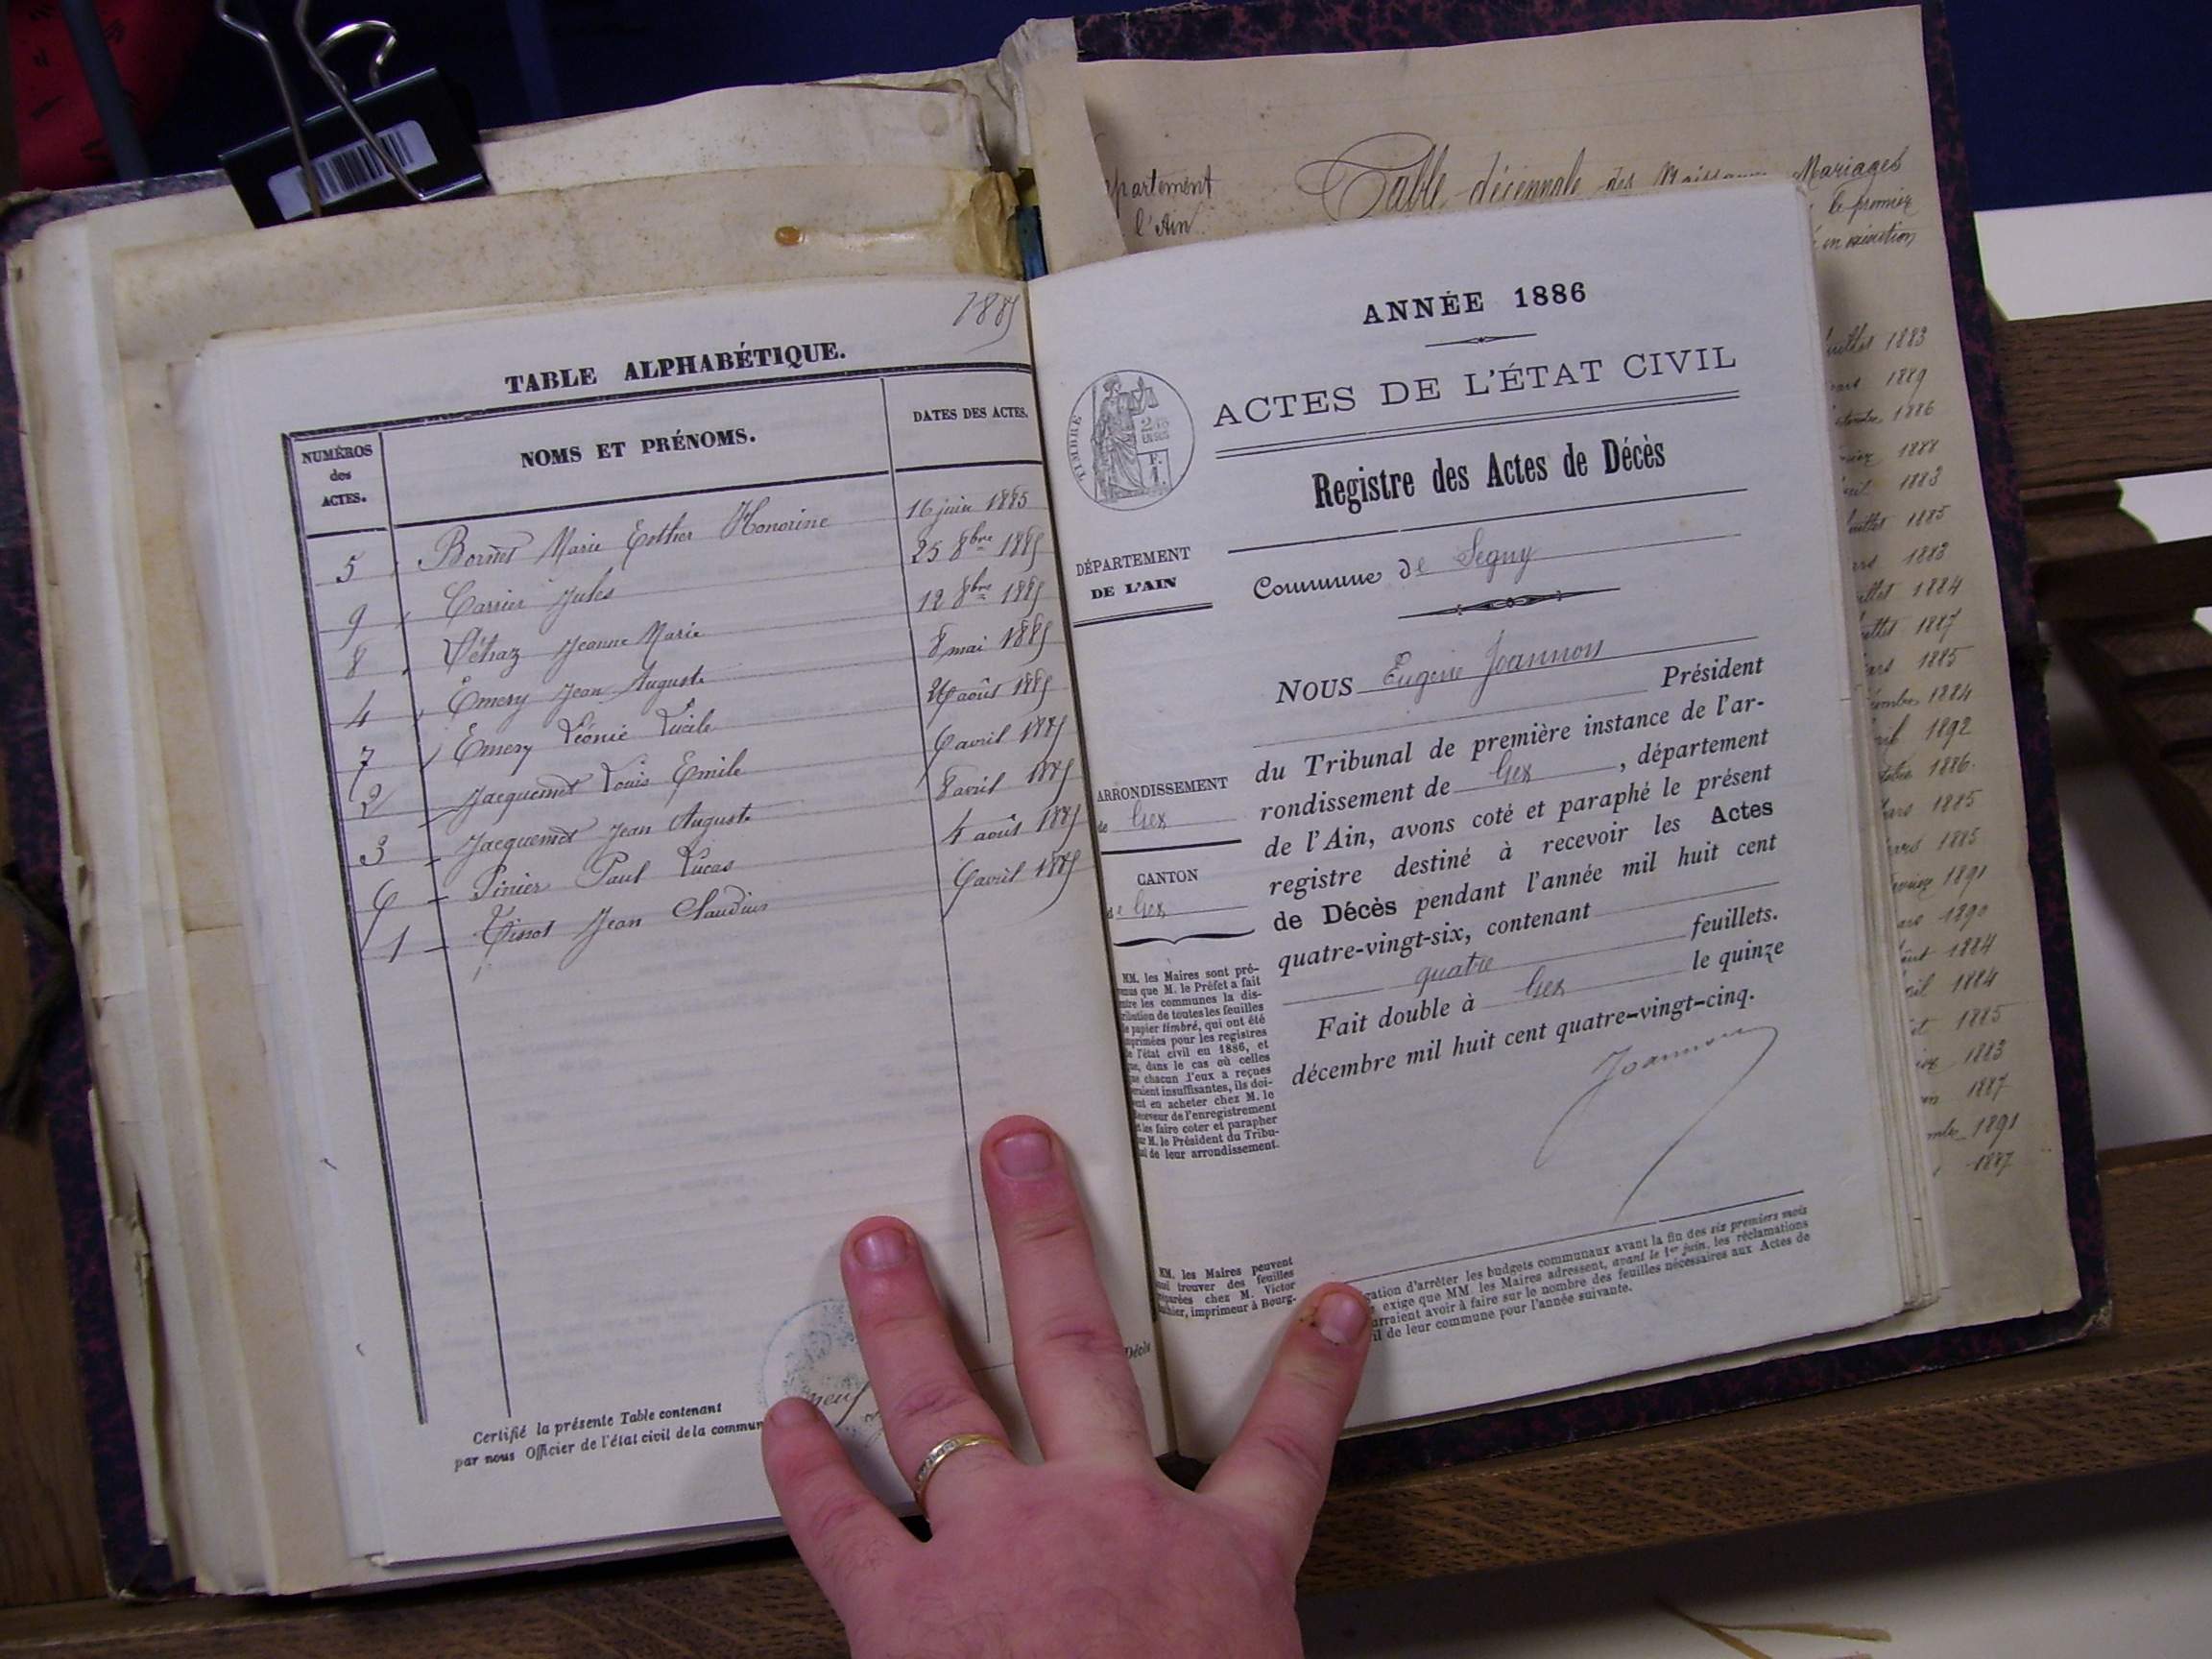 1885
TABLE ALPHABÉTIQUE.
NUMÉROS des ACTES. NOMS ET PRÉNOMS. DATES DES ACTES.
5 Bornet Marie Esther Honorine 16 juin 1885
9 Carrier Jules 25 8bre 1885
8 Déhaz Jeanne Marie 12 8bre 1885
4 Emery Jean Auguste 8 mai 1885
7 Emery Léonie Lucile août 1885
2 Jacquemet Louis Emile 6 avril 1885
3 Jacquemet Jean Auguste 8 avril 1885
6 Pinier Paul Lucas 4 août 1885
1 Tissot Jean Claudius 6 avril 1885
Certifié la présente Table contenant neuf
par nous Officier de l'état civil de la commun
Décès
partement
l'Ain
Table décennale des Naissances Mariages
le premier
en exécution
ANNÉE 1886
ACTES DE L'ÉTAT CIVIL
TIMBRE
Registre des Actes de Décès
DÉPARTEMENT
DE L'AIN
Commune de Segny
NOUS Eugène Joannon
Président
du Tribunal de première instance de l'ar-
rondissement de Gex, département
de l'Ain, avons coté et paraphé le présent
registre destiné à recevoir les Actes
de Décès pendant l'année mil huit cent
quatre-vingt-six, contenant
quatre feuillets.
Fait double à Gex le quinze
décembre mil huit cent quatre-vingt-cinq.
Joannon
ARRONDISSEMENT
de Gex
CANTON
de Gex
MM. les Maires sont pré-
venus que M. le Préfet a fait
entre les communes la dis-
tribution de toutes les feuilles
de papier timbré, qui ont été
imprimées pour les registres
de l'état civil en 1886, et
que, dans le cas où celles
que chacun d'eux a reçues
seraient insuffisantes, ils doi-
vent en acheter chez M. le
Receveur de l'enregistrement
et les faire coter et parapher
par M. le Président du Tribu-
nal de leur arrondissement.
MM. les Maires peuvent
aussi trouver des feuilles
préparées chez M. Victor
imprimeur à Bourg.
gation d'arrêter les budgets communaux avant la fin des six premiers mois
exige que MM. les Maires adressent, avant le 1er juin, les réclamations
urraient avoir à faire sur le nombre des feuilles nécessaires aux Actes de
il de leur commune pour l'année suivante.
1883
1889
1886
1888
1883
1885
1883
1884
1887
1885
1884
1892
1886
1885
1885
1891
1890
1884
1884
1885
1883
1887
1891
1887